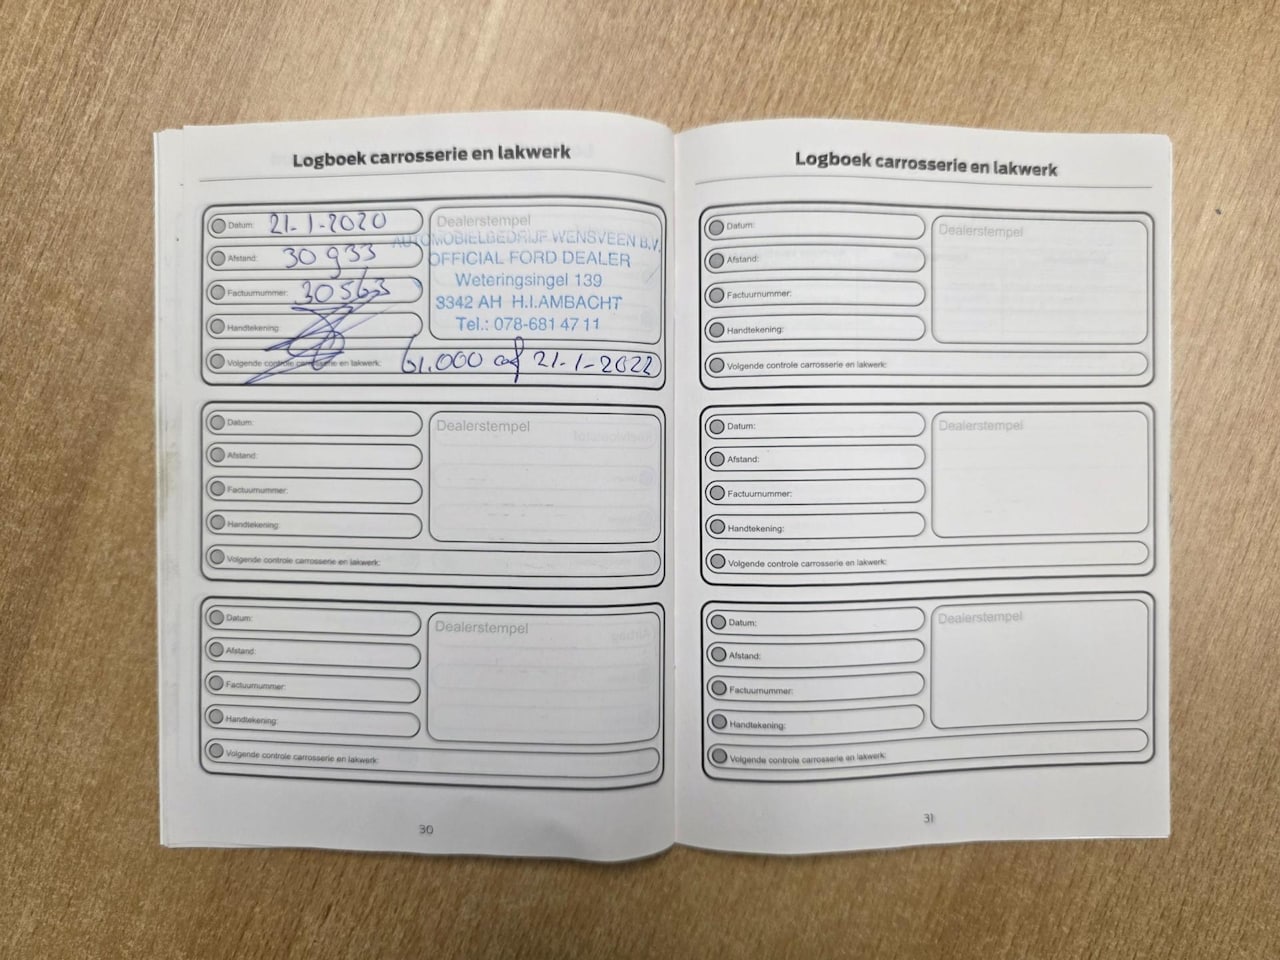 Logboek carrosserie en lakwerk
Datum: 21-1-2020
Afstand: 30933
Factuurnummer: 30563
Handtekening:
Volgende controle carrosserie en lakwerk: 61.000 of 21-1-2022
Dealerstempel
AUTOMOBIELBEDRIJF WENSVEEN B.V.
OFFICIAL FORD DEALER
Weteringsingel 139
3342 AH H.I.AMBACHT
Tel.: 078-681 47 11
Datum:
Afstand:
Factuurnummer:
Handtekening:
Volgende controle carrosserie en lakwerk:
Dealerstempel
Datum:
Afstand:
Factuurnummer:
Handtekening:
Volgende controle carrosserie en lakwerk:
Dealerstempel
30
Logboek carrosserie en lakwerk
Datum:
Afstand:
Factuurnummer:
Handtekening:
Volgende controle carrosserie en lakwerk:
Dealerstempel
Datum:
Afstand:
Factuurnummer:
Handtekening:
Volgende controle carrosserie en lakwerk:
Dealerstempel
Datum:
Afstand:
Factuurnummer:
Handtekening:
Volgende controle carrosserie en lakwerk:
Dealerstempel
31